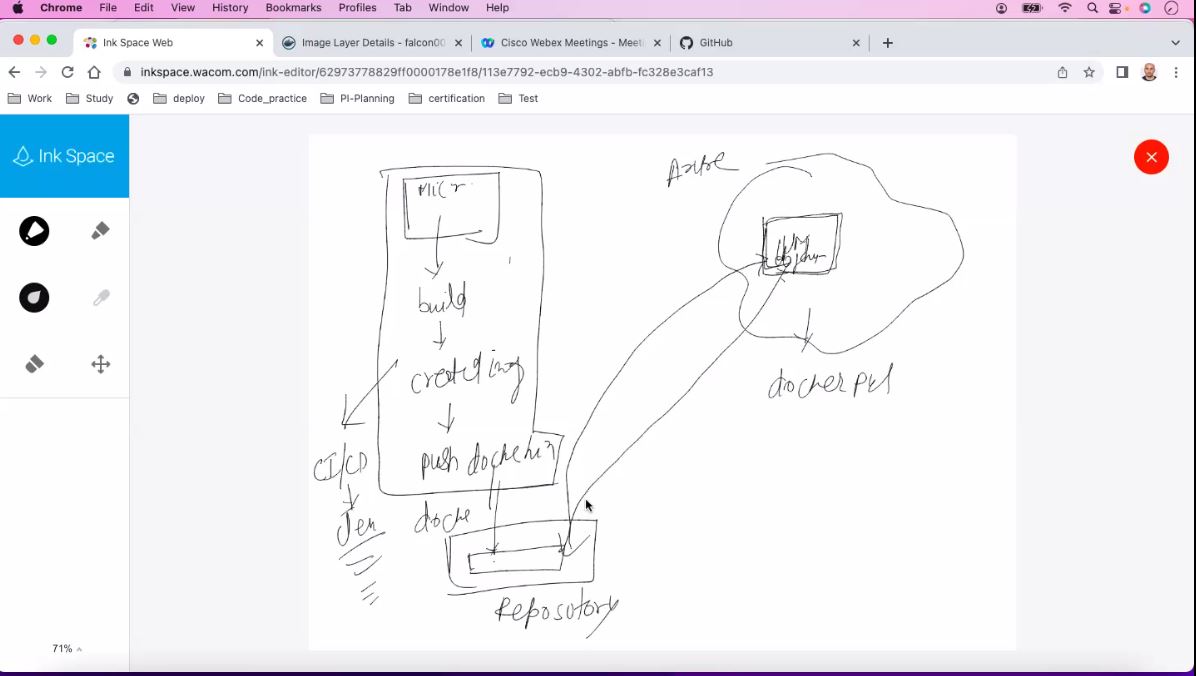 Chrome File Edit View History Bookmarks Profiles Tab Window Help
Ink Space Web
Image Layer Details - falcon00
Cisco Webex Meetings - Meeti
GitHub
inkspace.wacom.com/ink-editor/62973778829ff0000178e1f8/113e7792-ecb9-4302-abfb-fc328e3caf13
Work Study deploy Code_practice PI-Planning certification Test
Ink Space
Azure
Micr
VM
build
created img
docker pull
push
CI/CD
Jen
doche
Repository
71%